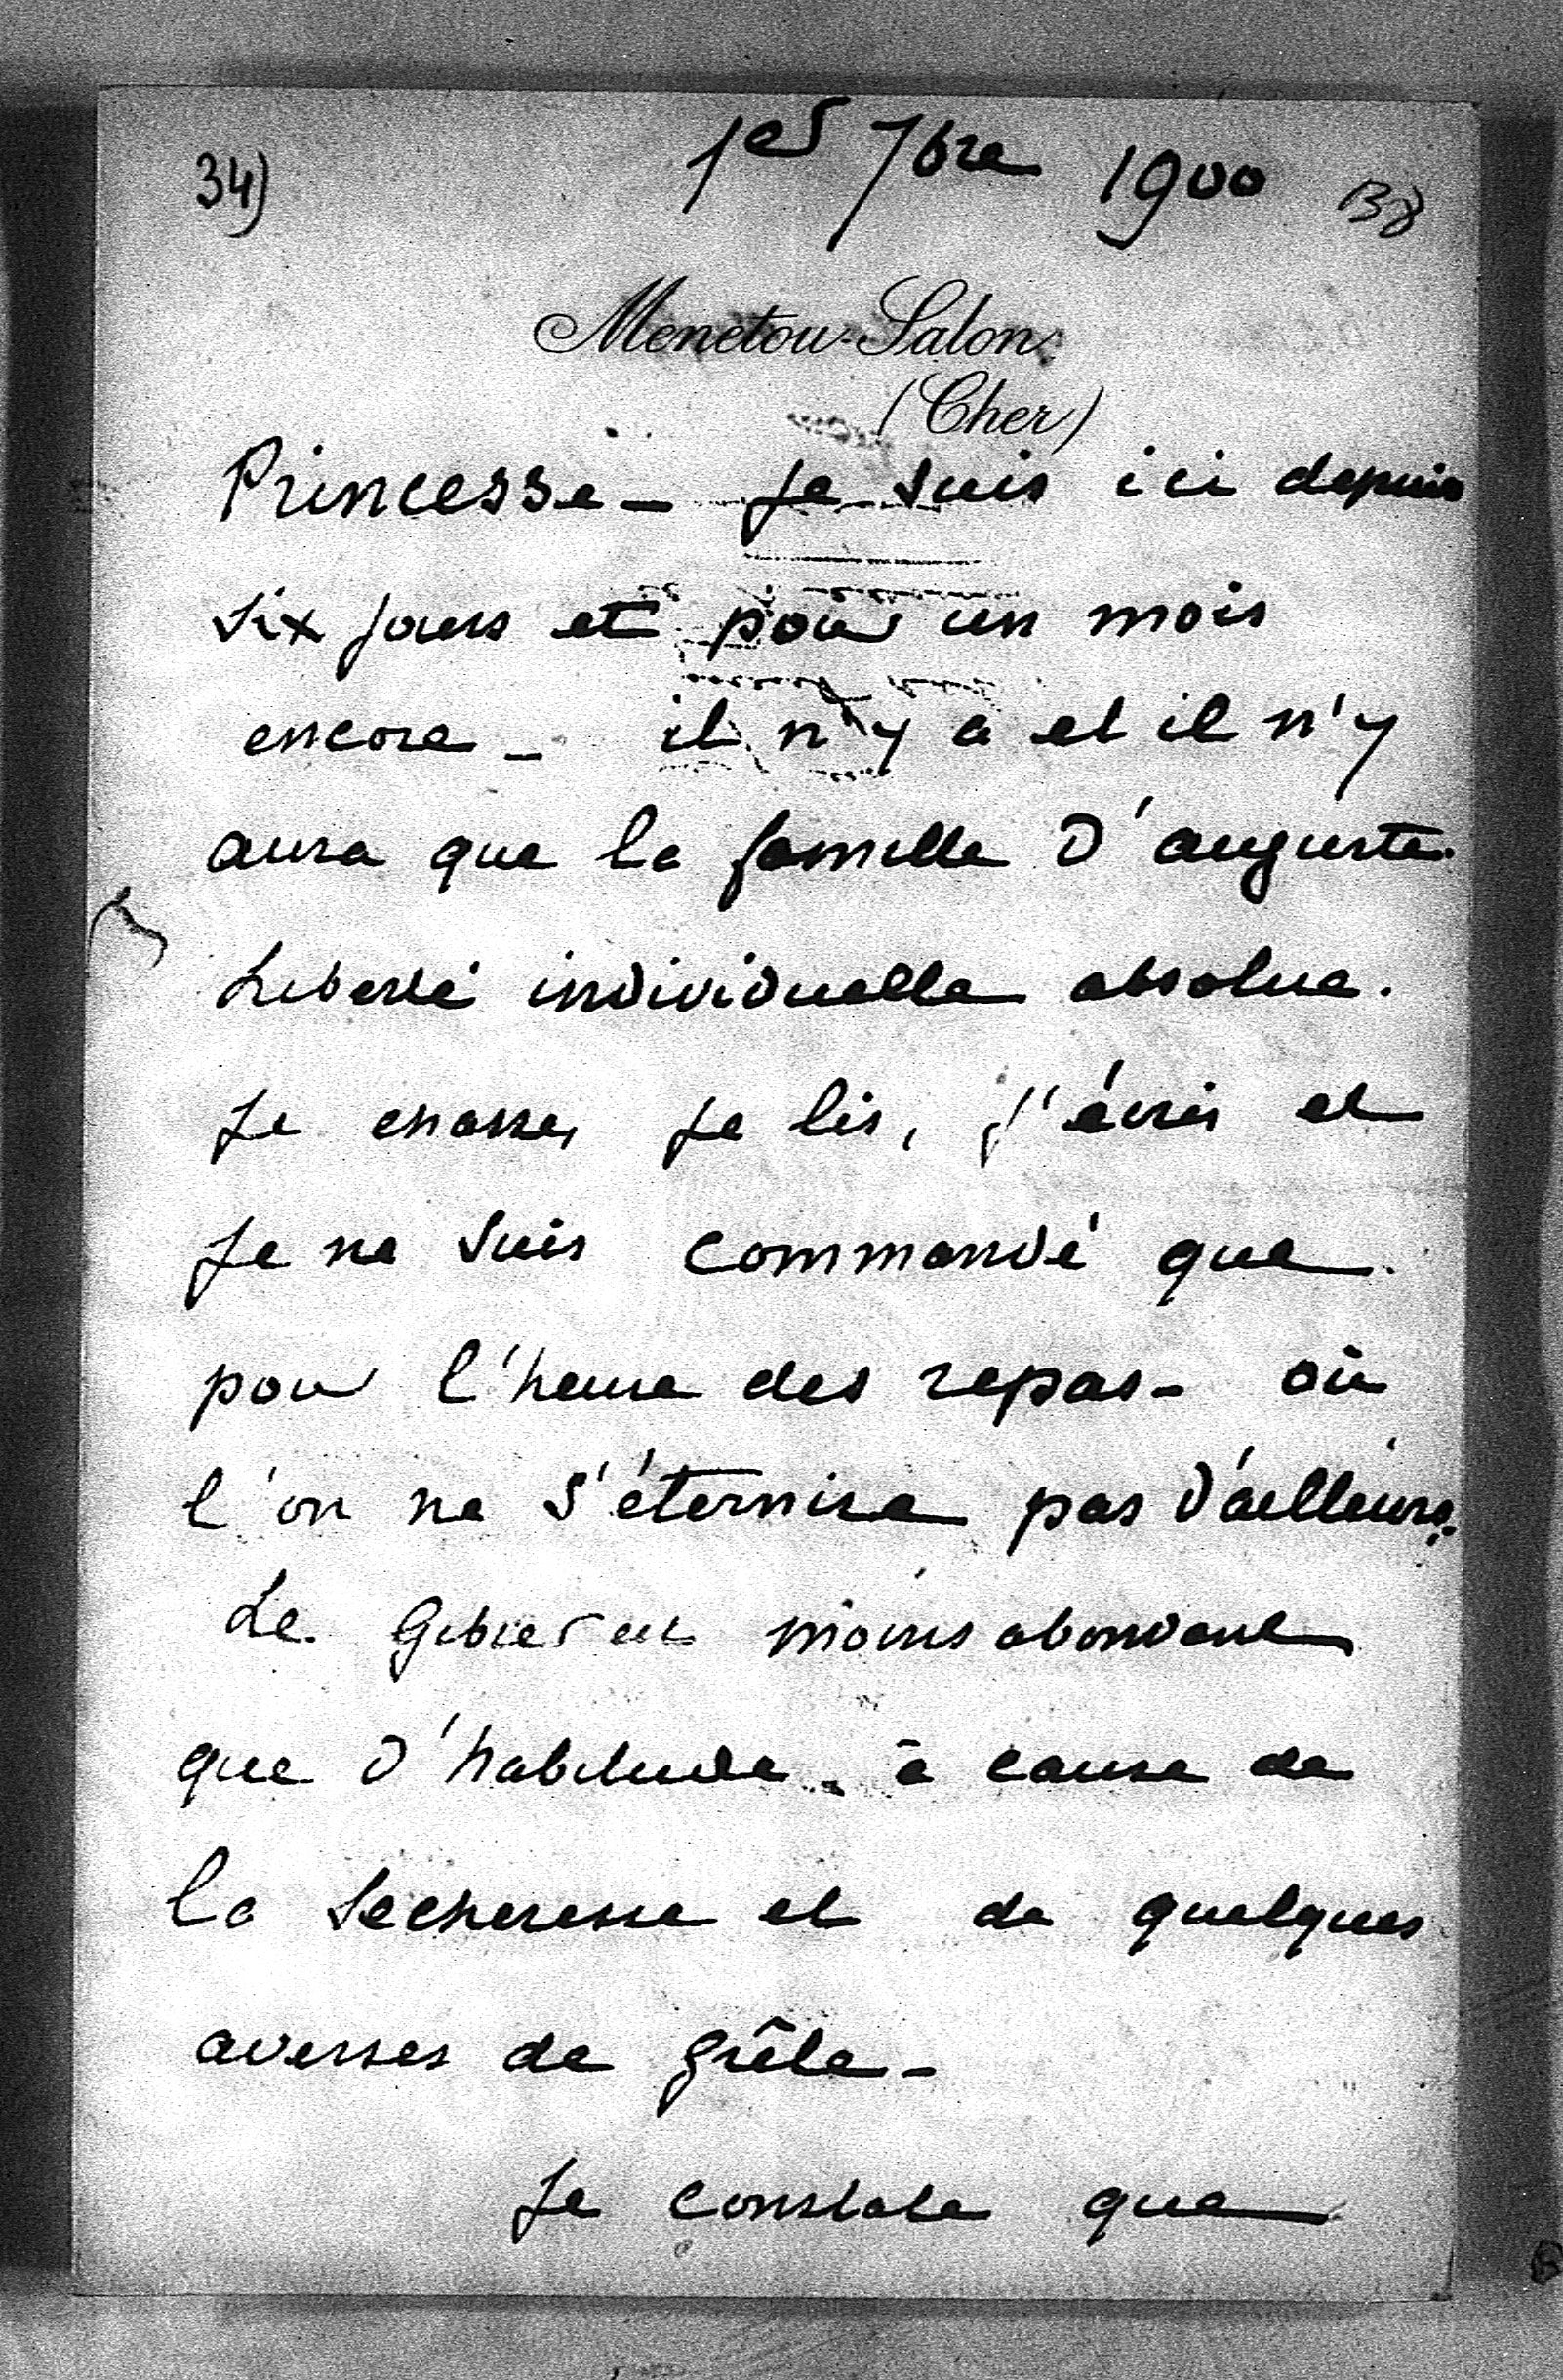 34)
1er 7bre 1900
138
Menetou-Salon
(Cher)
Princesse - Je suis ici depuis
six jours et pour un mois
encore - il n'y a et il n'y
aura que la famille d'auguste.
Liberté individuelle absolue.
Je chasse, je lis, j'écris et
je ne suis commandé que
pour l'heure des repas - où
l'on ne s'éternise pas d'ailleurs.
Le Gibier est moins abondant
que d'habitude à cause de
la secheresse et de quelques
averses de grêle -
Je constate que